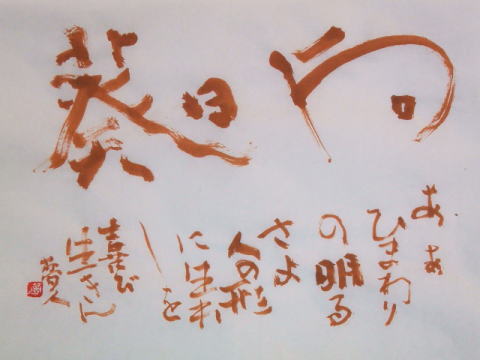 向日葵
ああ
ひまわり
の明る
さよ
人の形
に生れ
しを
喜び
生きん